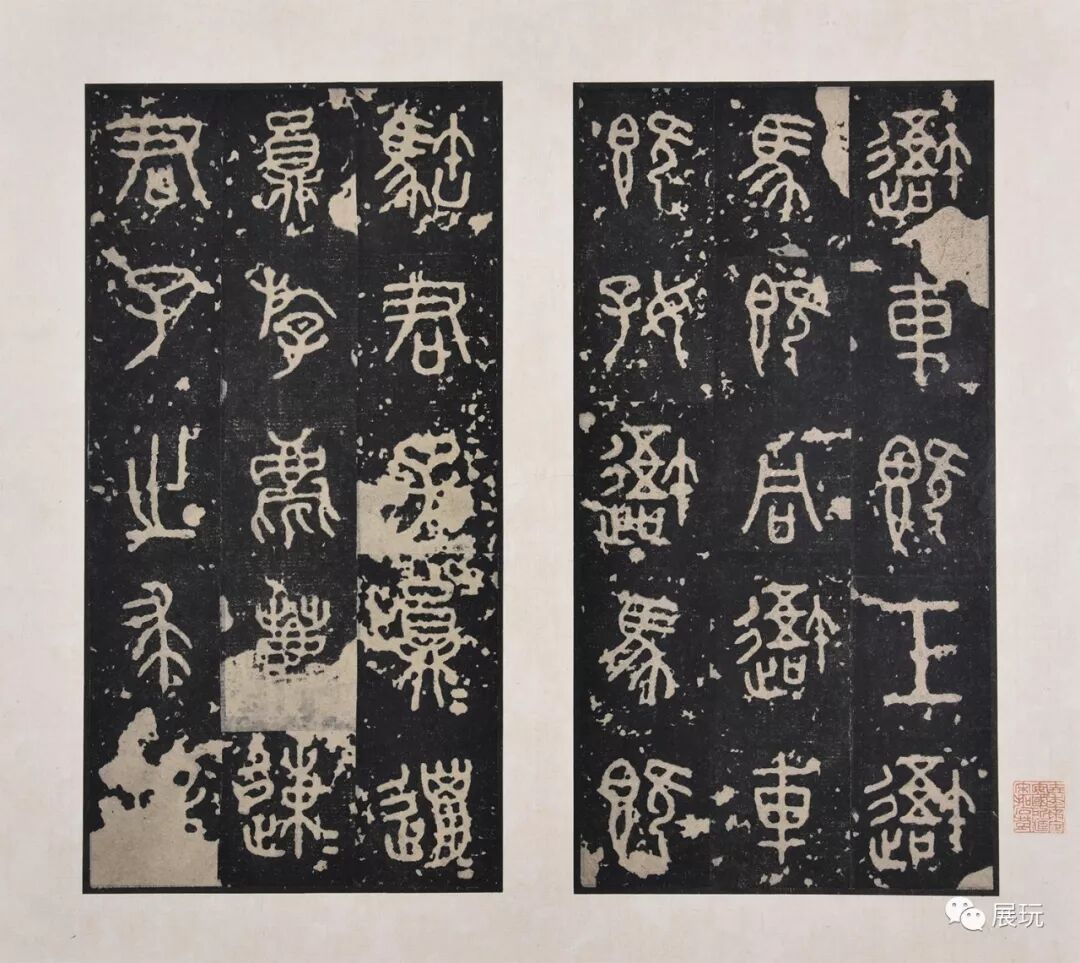 吾車既工吾
馬既同吾車
既好吾馬既
𩣡君子員邋
員斿麀鹿速
君子之求
展玩